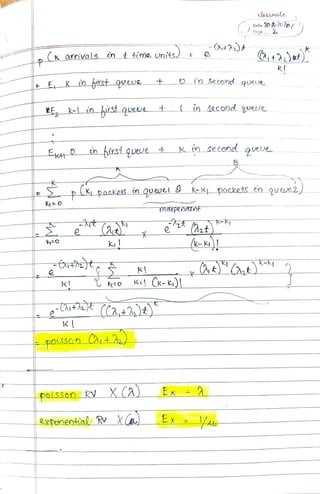 classmate
Date
Page 2
P (K arrivals in t time units) = e^-(λ1+λ2)t ((λ1+λ2)t)^K / K!
E1 K in first queue + 0 in second queue
E2 k-1 in first queue + 1 in second queue
⋮
EK+1 0 in first queue + K in second queue
A B
= Σ (K1=0 to K) P (K1 packets in queue1 & K-K1 packets in queue2)
independent
= Σ (K1=0 to K) e^-λ1t (λ1t)^K1 / K1! × e^-λ2t (λ2t)^K-K1 / (K-K1)!
= e^-(λ1+λ2)t / K! { Σ (K1=0 to K) K! / K1! (K-K1)! × (λ1t)^K1 (λ2t)^K-K1 }
= e^-(λ1+λ2)t / K! ((λ1+λ2)t)^K
= poisson (λ1+λ2)
poisson RV X(λ) Ex = λ
exponential RV X(u) Ex = 1/u